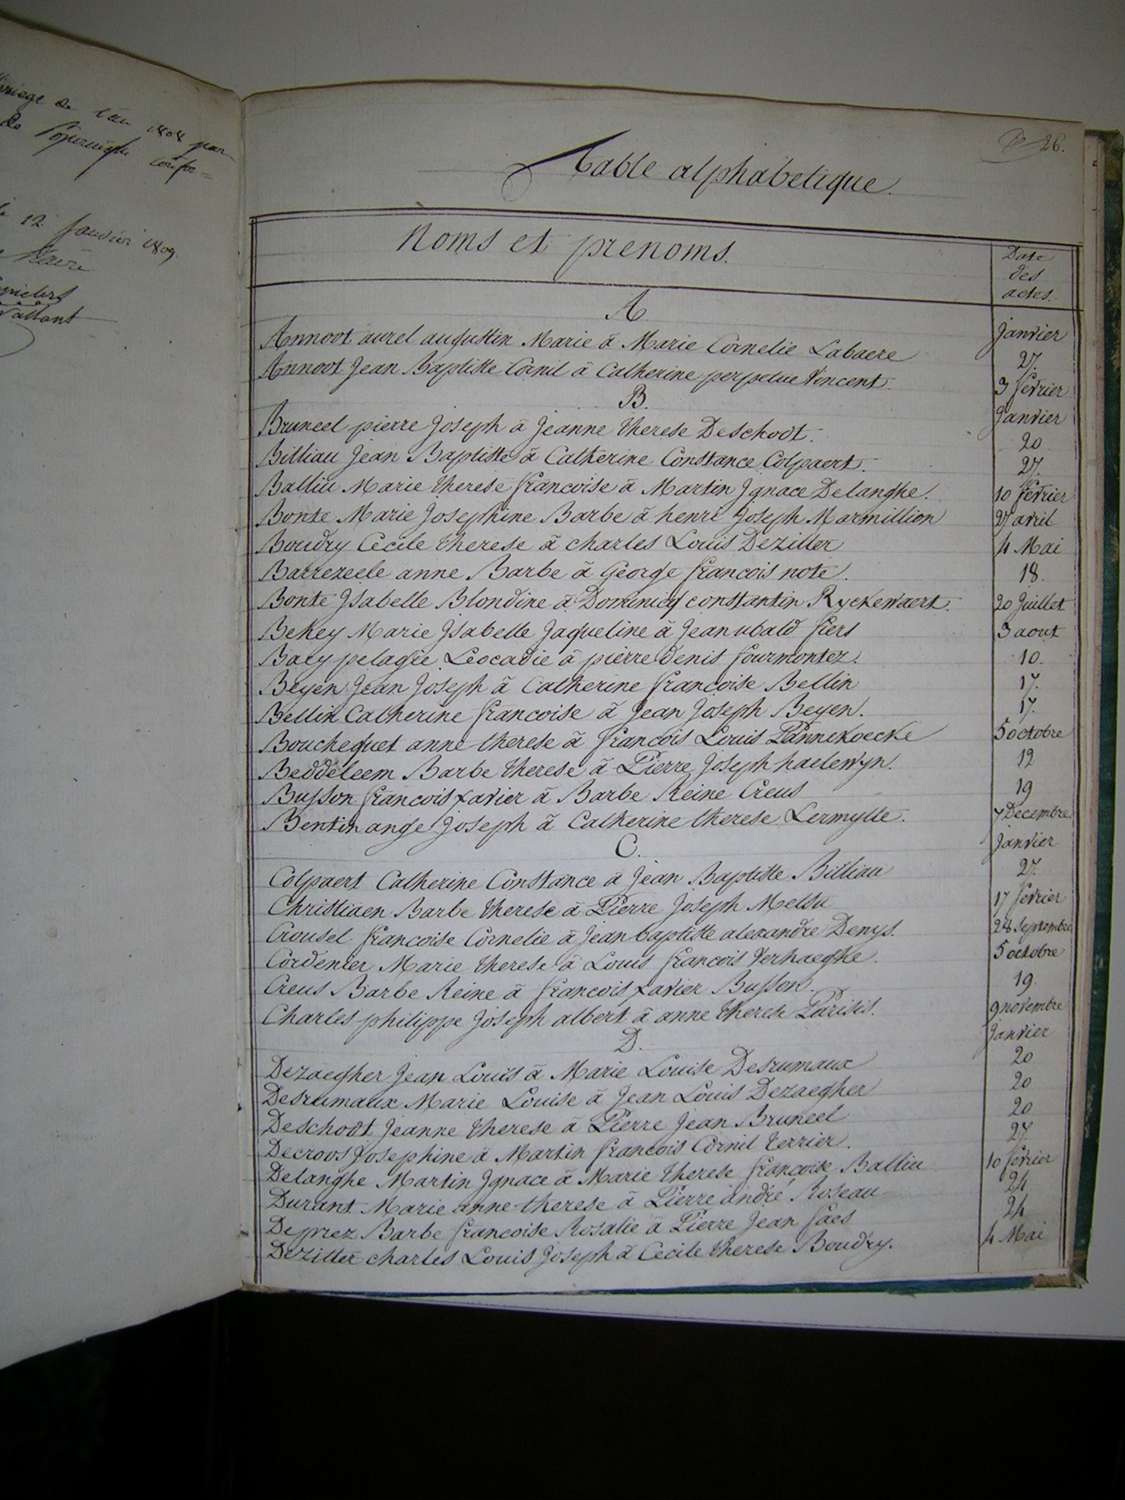 de l'an 1808
de Poperinghe
12 Janvier 1809
26.
Table alphabetique.
Noms et prenoms.
Date
des
actes.
A
janvier
Annoot aurel augustin Marie à Marie Cornelie Labaere 27.
Annoot Jean Baptiste Cornil à Catherine perpetue Vincent. 3 fevrier
B.
Janvier
Bruneel pierre Joseph à Jeanne therese Deschodt. 20
Billiau Jean Baptiste à Catherine Constance Colpaert. 27.
Balliu Marie therese francoise à Martin Ignace Delanghe. 10 fevrier
Bonte Marie Josephine Barbe à henri Joseph Marmillion 27 avril
Boudry Cecile therese à charles Louis Deziller 4 Mai
Barrezeele anne Barbe à George francois note. 18
Bonte Isabelle Blondine à Dominicq constantin Ryckewaert. 20 Juillet
Bekey Marie Isabelle Jaqueline à Jean ubald fiers 3 aout
Baey pelagie Leocadie à pierre Denis fourmontez. 10.
Beyen Jean Joseph à Catherine francoise Bellin 17.
Bellin Catherine francoise à Jean Joseph Beyen. 17.
Bouchequet anne therese à francois Louis Pannekoecke 5 octobre
Beddeleem Barbe therese à Pierre Joseph haelewyn. 12
Busson francois xavier à Barbe Reine Creus 19
Bentin ange Joseph à Catherine therese Lermytte. 7 Decembre
C.
janvier
Colpaert Catherine Constance à Jean Baptiste Billiau 27.
Christiaen Barbe therese à Pierre Joseph Melsu 17 fevrier
Crousel francoise Cornelie à Jean baptiste alexandre Denys. 28 Septembre
Cordenier Marie therese à Louis francois Verhaeghe. 5 octobre
Creus Barbe Reine à francois xavier Busson. 19
Charles philippe Joseph albert à anne therese Parisis. 9 novembre
D.
Janvier
Dezaegher Jean Louis à Marie Louise Desrumaux 20
Desrumaux Marie Louise à Jean Louis Dezaegher 20
Deschodt Jeanne therese à Pierre Jean Bruneel 20
Decroos Josephine à Martin francois Cornil terrier. 27
Delanghe Martin Ignace à Marie therese françoise Balliu 10 fevrier
Durant Marie anne therese à Pierre andré Roseau 24
Deprez Barbe francoise Rosalie à Pierre Jean faes 24
Deziller charles Louis Joseph à Cecile therese Boudry. 4 Mai